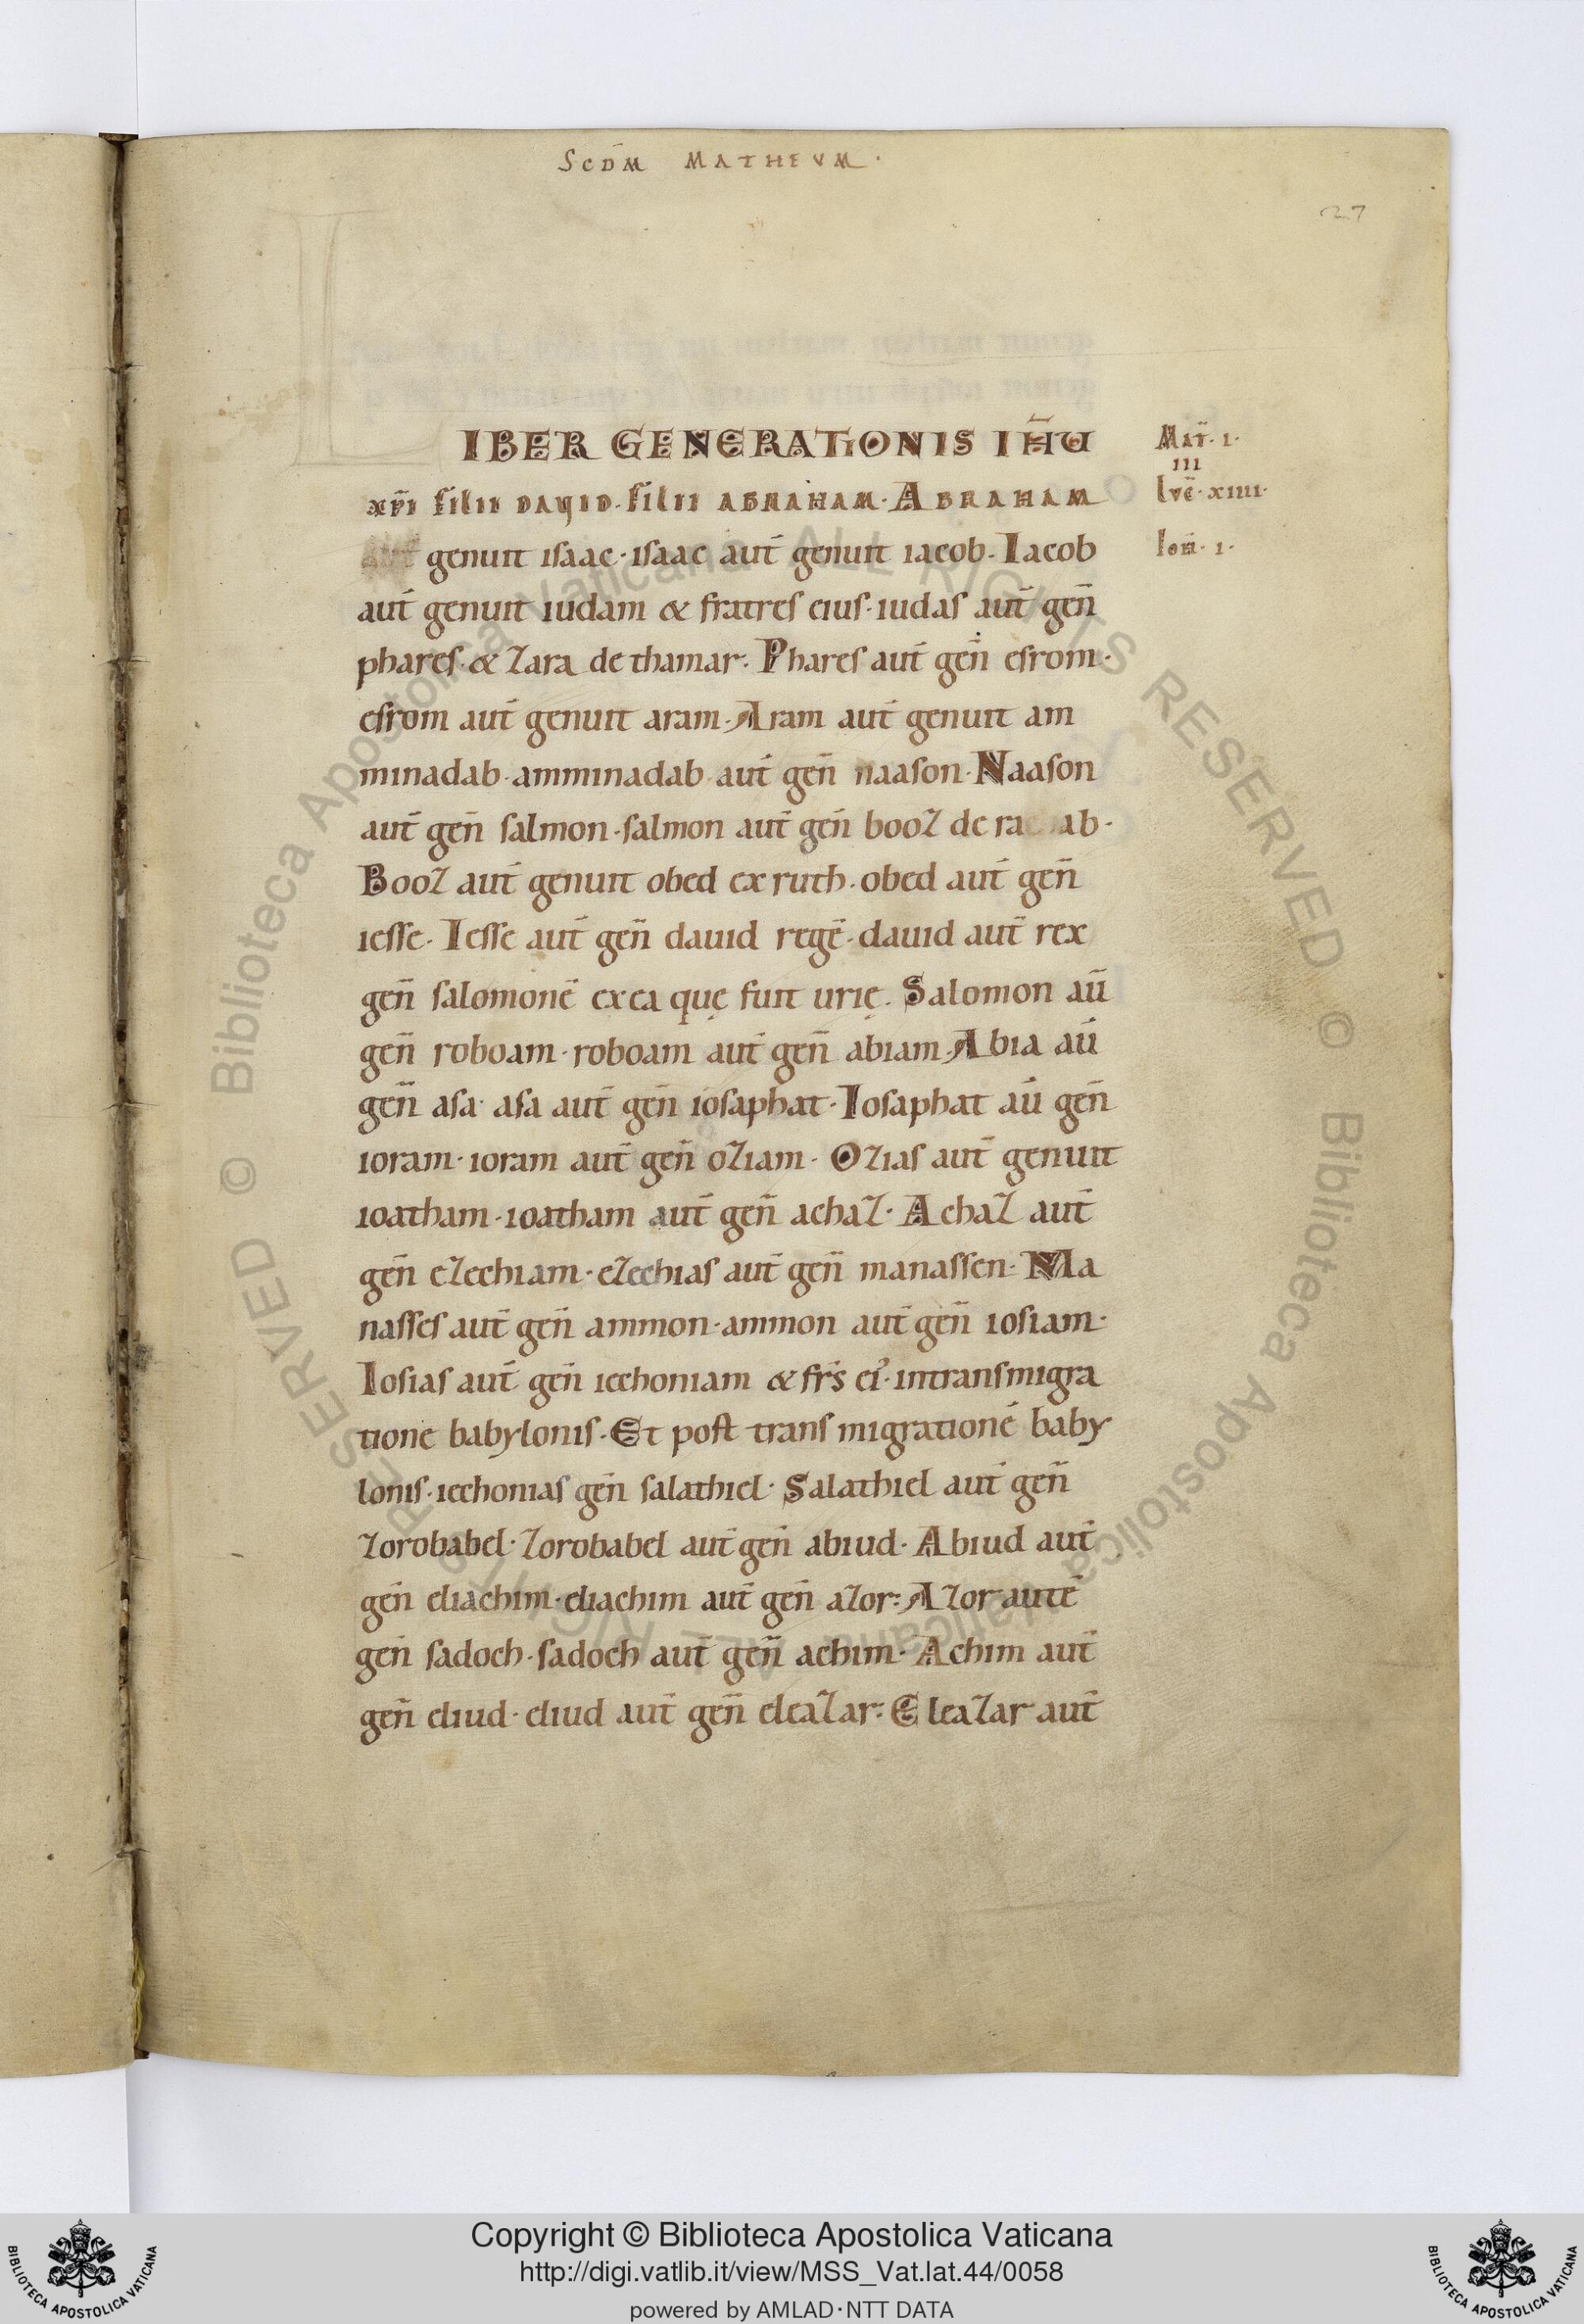 SCDM̄ MATHEVM·
27
IBER GENERATIONIS IH̄U
xp̄i filii dauid·filii abraham·Abraham
genuit isaac·isaac aut̄ genuit iacob·Iacob
aut̄ genuit iudam & fratres eius·iudas aut̄ gen̄
phares·& zara de thamar·Phares aut̄ gen̄ esrom·
esrom aut̄ genuit aram·Aram aut̄ genuit am
minadab·amminadab aut̄ gen̄ naason·Naason
aut̄ gen̄ salmon·salmon aut̄ gen̄ booz de ra ab·
Booz aut̄ genuit obed ex ruth·obed aut̄ gen̄
iesse·Iesse aut̄ gen̄ dauid regē·dauid aut̄ rex
gen̄ salomonē ex ea quę fuit urię·Salomon aū
gen̄ roboam·roboam aut̄ gen̄ abiam·Abia aū
gen̄ asa·asa aut̄ gen̄ iosaphat·Iosaphat aū gen̄
ioram·ioram aut̄ gen̄ oziam·Ozias aut̄ genuit
ioatham·ioatham aut̄ gen̄ achaz·Achaz aut̄
gen̄ ezechiam·ezechias aut̄ gen̄ manassen·Ma
nasses aut̄ gen̄ ammon·ammon aut̄ gen̄ iosiam·
Iosias aut̄ gen̄ iechoniam & fr̄s ei᾽·intransmigra
tione babylonis·Et post transmigrationē baby
lonis·iechonias gen̄ salathiel·Salathiel aut̄ gen̄
zorobabel·zorobabel aut̄ gen̄ abiud·Abiud aut̄
gen̄ eliachim·eliachim aut̄ gen̄ azor·Azor autē
gen̄ sadoch·sadoch aut̄ gen̄ achim·Achim aut̄
gen̄ eliud·eliud aut̄ gen̄ eleazar·Eleazar aut̄
Mat̄·i·
iii
lvc̄·xiiii·
Ioh̄·i·
© Biblioteca Apostolica Vaticana ALL RIGHTS RESERVED
© Biblioteca Apostolica Vaticana ALL RIGHTS RESERVED
Copyright © Biblioteca Apostolica Vaticana
http://digi.vatlib.it/view/MSS_Vat.lat.44/0058
powered by AMLAD·NTT DATA
BIBLIOTECA APOSTOLICA VATICANA
BIBLIOTECA APOSTOLICA VATICANA